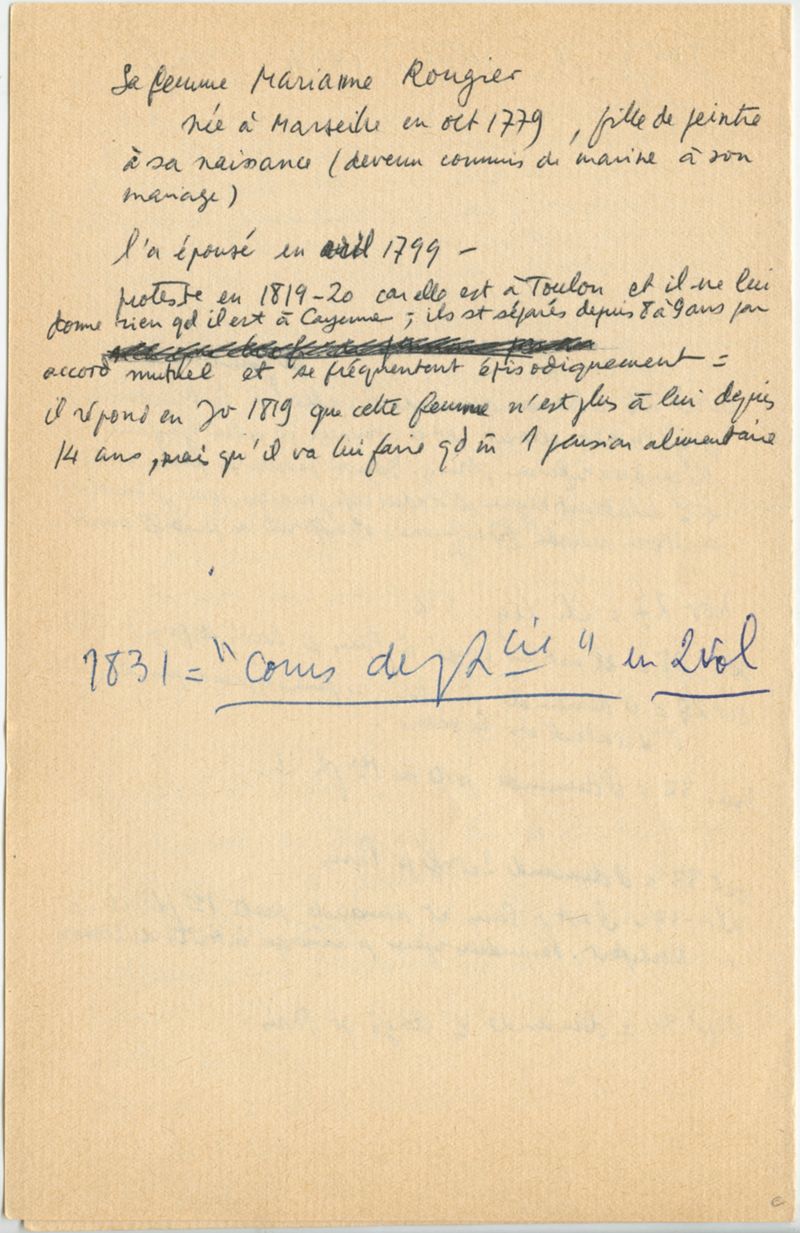 Sa femme Marianne Rougier
née à Marseille en oct 1779, fille de peintre
à sa naissance (devenu commis de marine à son
mariage)
l'a épousé en avril 1799 –
proteste en 1819-20 car elle est à Toulon et il ne lui
donne rien qd il est à Cayenne ; ils st séparés depuis 8 à 9 ans par
accord mutuel et se fréquentent épisodiquement =
il répond en Jv 1819 que cette femme n'est plus à lui depuis
14 ans, mais qu'il va lui faire qd m̂ 1 pension alimentaire
1831 = "Cours de ph cie" en 2 vol